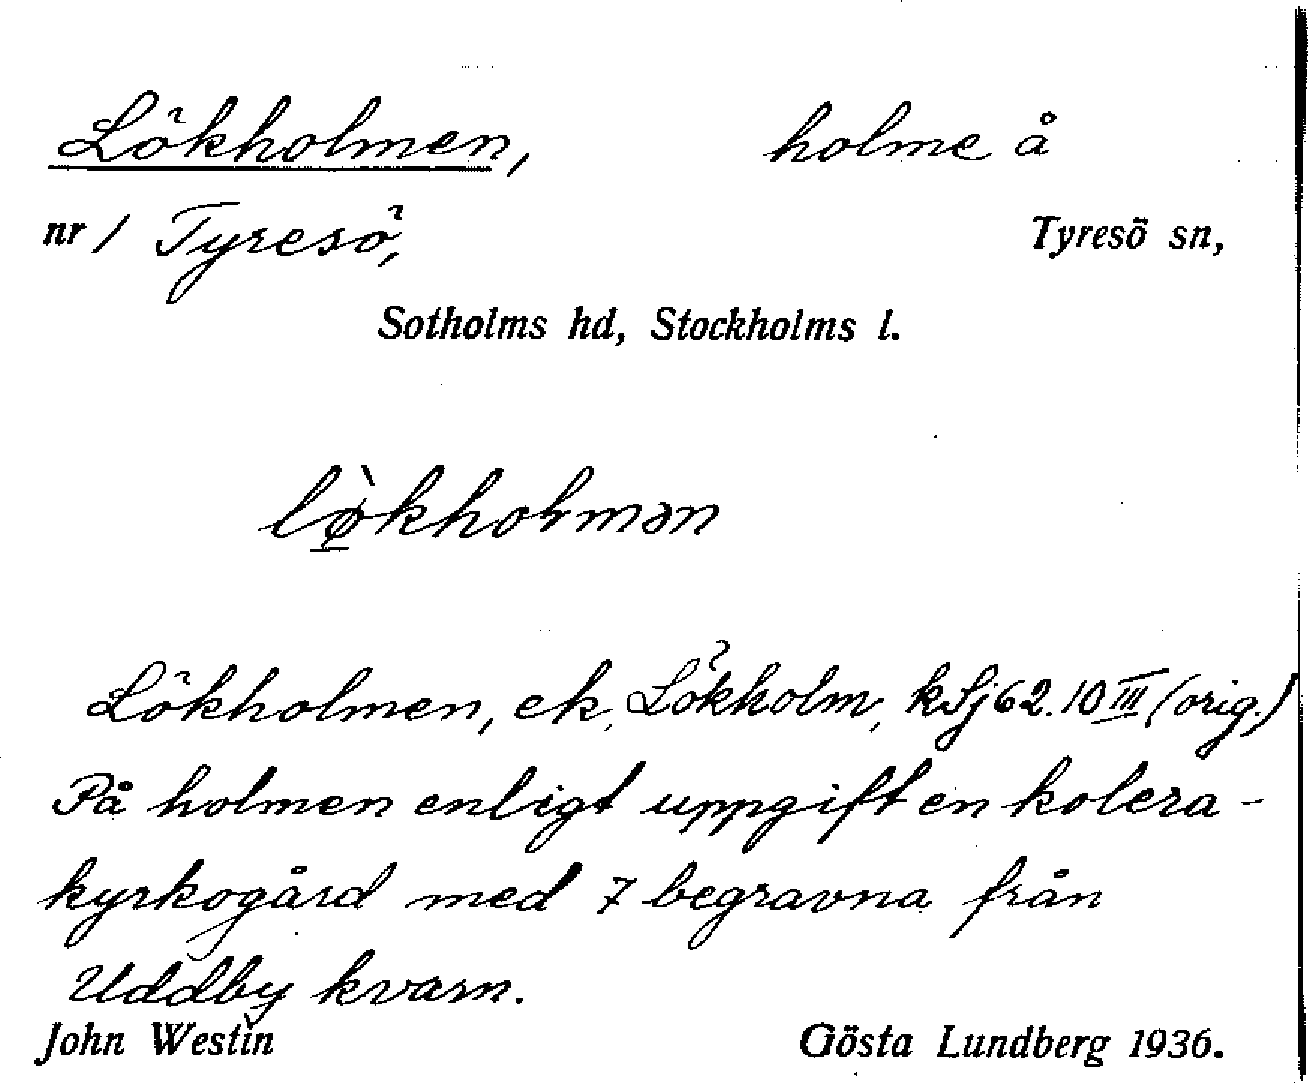 Lökholmen, holme å
nr 1 Tyresö, Tyresö sn,
Sotholms hd, Stockholms l.
lø̀kholmən
Lökholmen, ek, Lökholm, kSj 62.10 III (orig.)
På holmen enligt uppgift en kolera-
kyrkogård med 7 begravna från
Uddby kvarn.
John Westin Gösta Lundberg 1936.